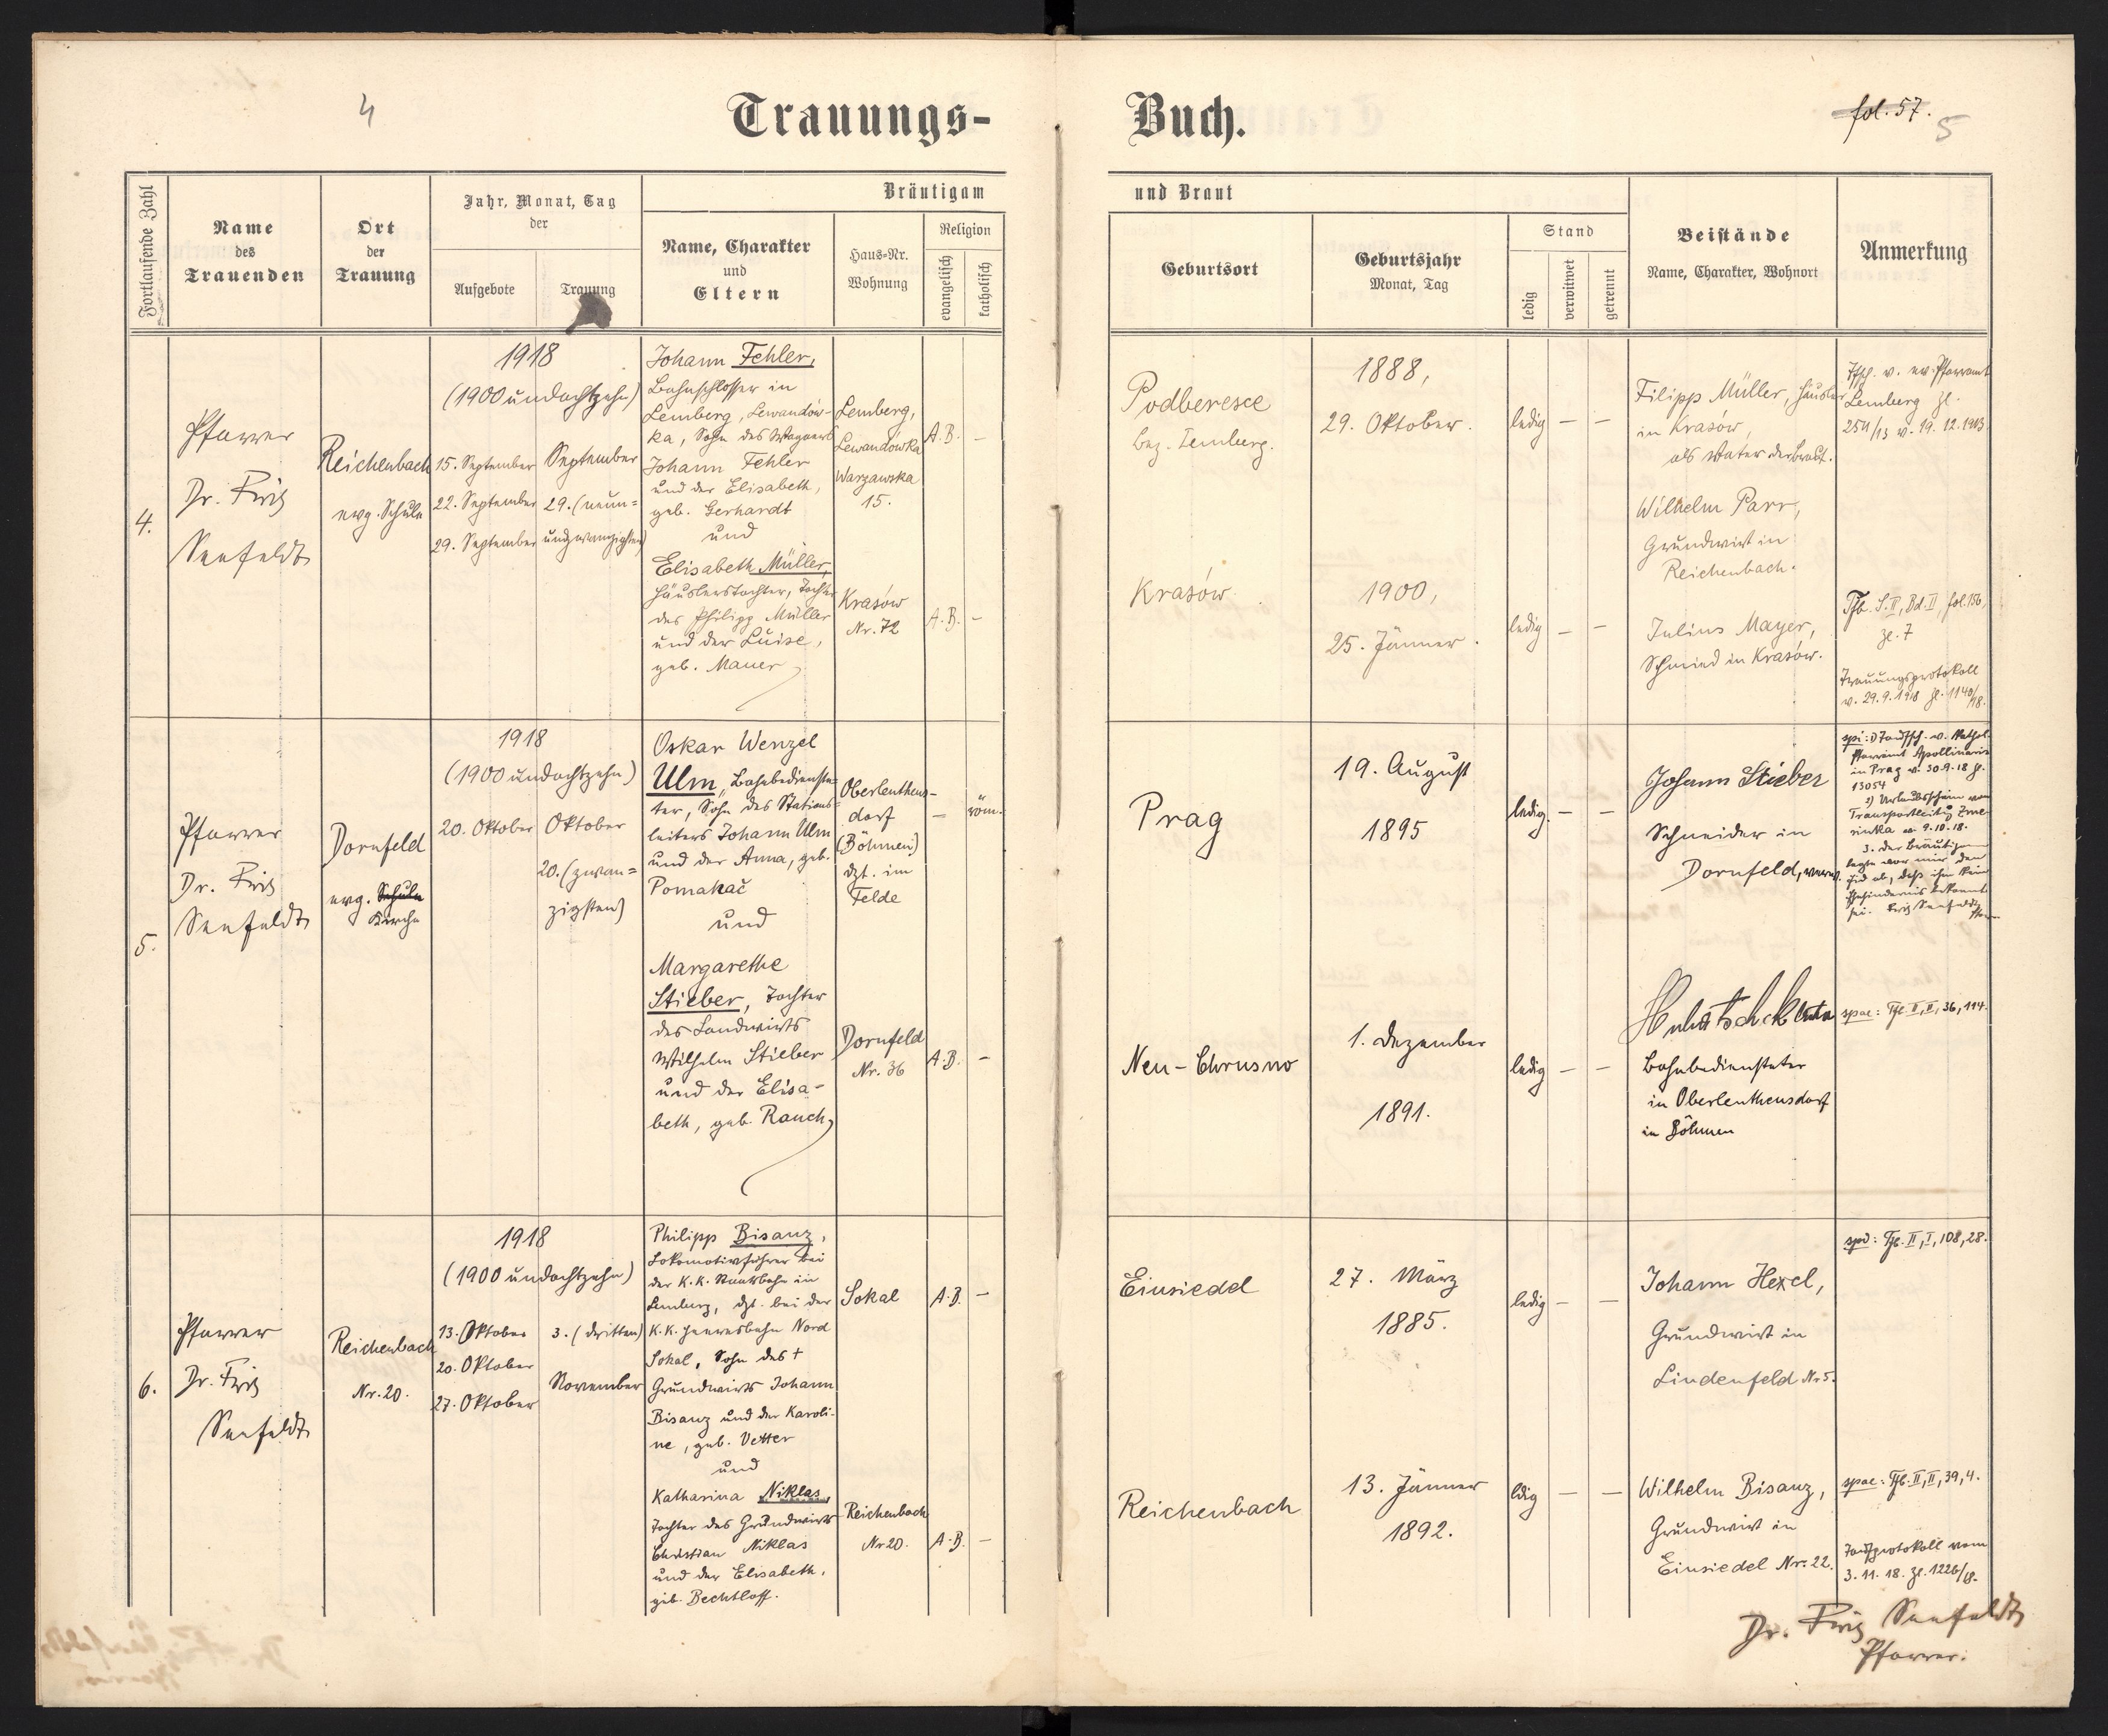 4
Trauungs-
Buch.
fol. 57.
5
Fortlaufende Zahl
Name
des
Trauenden
Ort
der
Trauung
Jahr, Monat, Tag
der
Aufgebote
Trauung
Bräutigam
Name, Charakter
und
Eltern
Haus-Nr.
Wohnung
Religion
evangelisch
katholisch
und Braut
Geburtsort
Geburtsjahr
Monat, Tag
Stand
ledig
verwitwet
getrennt
Beistände
Name, Charakter, Wohnort
Anmerkung
4.
Pfarrer
Dr. Fritz
Seefeldt
Reichenbach
evg. Schule
1918
(1900 undachtzehn)
15. September
22. September
29. September
September
29. (neun=
undzwanzigsten)
Johann Fehler,
Bahnschlosser in
Lemberg, Lewandów-
ka, Sohn des Wagners
Johann Fehler
und der Elisabeth,
geb. Gerhardt
und
Elisabeth Müller,
Häuslerstochter, Tochter
des Philipp Müller
und der Luise,
geb. Mauer
Lemberg,
Lewandówka
Warzawska
15.
A.B. –
Krasów
Nr. 72
A.B. –
Podberesce
bez. Lemberg.
1888,
29. Oktober.
ledig – –
Krasów
1900,
25. Jänner.
ledig – –
Filipp Müller, Häusler
in Krasów,
als Vater der Braut.
Wilhelm Parr,
Grundwirt in
Reichenbach.
Julius Mayer,
Schmied in Krasów.
Tfsch. v. ev. Pfarramt
Lemberg Zl.
254/13 v. 19. 12. 1913.
Tfb. S. II, Bd. II, fol. 156,
Zl. 7
Trauungsprotokoll
v. 29. 9. 1918 Zl. 1140/18.
5.
Pfarrer
Dr. Fritz
Seefeldt
Dornfeld
evg. Schule
Kirche
1918
(1900 undachtzehn)
20. Oktober
Oktober
20. (zwan=
zigsten)
Oskar Wenzel
Ulm, Bahnbedienste-
ter, Sohn des Stations-
leiters Johann Ulm
und der Anna, geb.
Pomakač
und
Margarethe
Stieber, Tochter
des Landwirts
Wilhelm Stieber
und der Elisa-
beth, geb. Rauch
Oberleutens-
dorf
(Böhmen)
dzt. im
Felde
– röm.
Dornfeld
Nr. 36
A.B. –
Prag
19. August
1895
ledig. – –
Neu-Chrusno
1. Dezember
1891.
ledig – –
Johann Stieber
Schneider in
Dornfeld,
Bahnbediensteter
in Oberleuthensdorf
in Böhmen
spi: 1) Taufsch. v. kathol.
Pfarramt Apollinaris
in Prag v. 30. 9. 18 Zl.
13054
2) Urlaubsschein vom
Transportleitg Zme-
rinka v. 9. 10. 18.
3. der Bräutigam
legte vor mir den
Eid ab, daß ihm kein
Ehehindernis bekannt
sei. Fritz Seefeldt
spae: Tfb. II, II, 36, 114.
6.
Pfarrer
Dr. Fritz
Seefeldt
Reichenbach
Nr. 20.
1918
(1900 undachtzehn)
13. Oktober
20. Oktober
27. Oktober
3. (dritten)
November
Philipp Bisanz,
Lokomotivführer bei
der K.K. Staatsbahn in
Lemberg, dzt. bei der
K.K. Heeresbahn Nord
Sokal, Sohn des †
Grundwirts Johann
Bisanz und der Karoli-
ne, geb. Vetter
und
Katharina Niklas,
Tochter des Grundwirts
Christian Niklas
und der Elisabeth,
geb. Bechtloff.
Sokal
A.B. –
Reichenbach
Nr 20.
A.B. –
Einsiedel
27. März
1885.
ledig – –
Reichenbach
13. Jänner
1892.
ldig – –
Johann Hexel,
Grundwirt in
Lindenfeld Nr 5.
Wilhelm Bisanz,
Grundwirt in
Einsiedel Nr. 22.
spi: Tfb. II, I, 108, 28.
spae: Tfb. II, II, 39, 4.
3. 11. 18. Zl. 1226/18.
Dr. Fritz Seefeldt
Pfarrer.